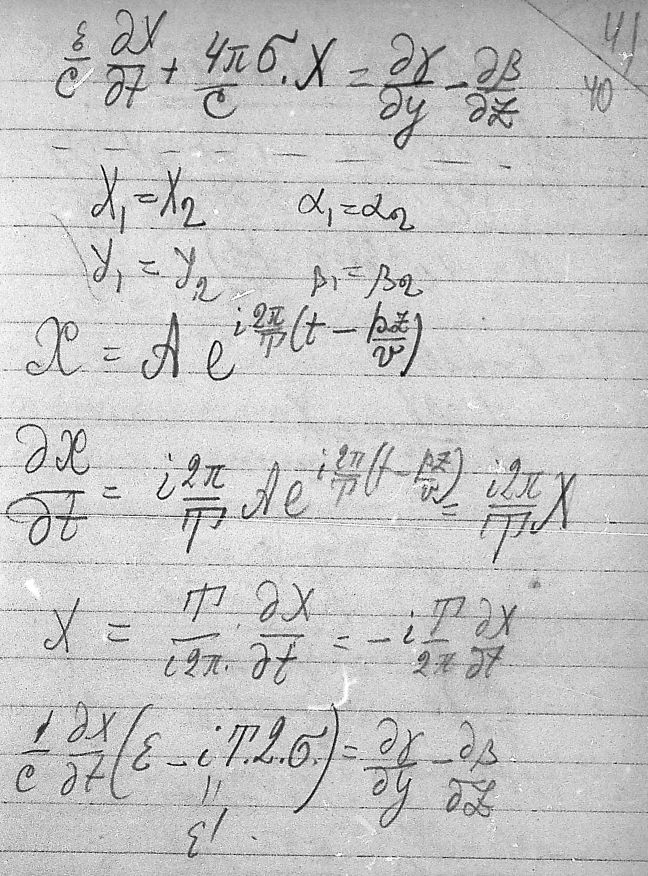 41
40
ε/c ∂X/∂t + 4πσ/c . X = ∂γ/∂y - ∂β/∂z
X₁ = X₂ α₁ = α₂
Y₁ = Y₂ β₁ = β₂
X = A e^{i 2π/T (t - pz/v)}
∂X/∂t = i 2π/T A e^{i 2π/T (t - pz/v)} = i2π/T X
X = T/i2π . ∂X/∂t = -i T/2π ∂X/∂t
1/c ∂X/∂t (ε - iT.2.σ.) = ∂γ/∂y - ∂β/∂z
ε'